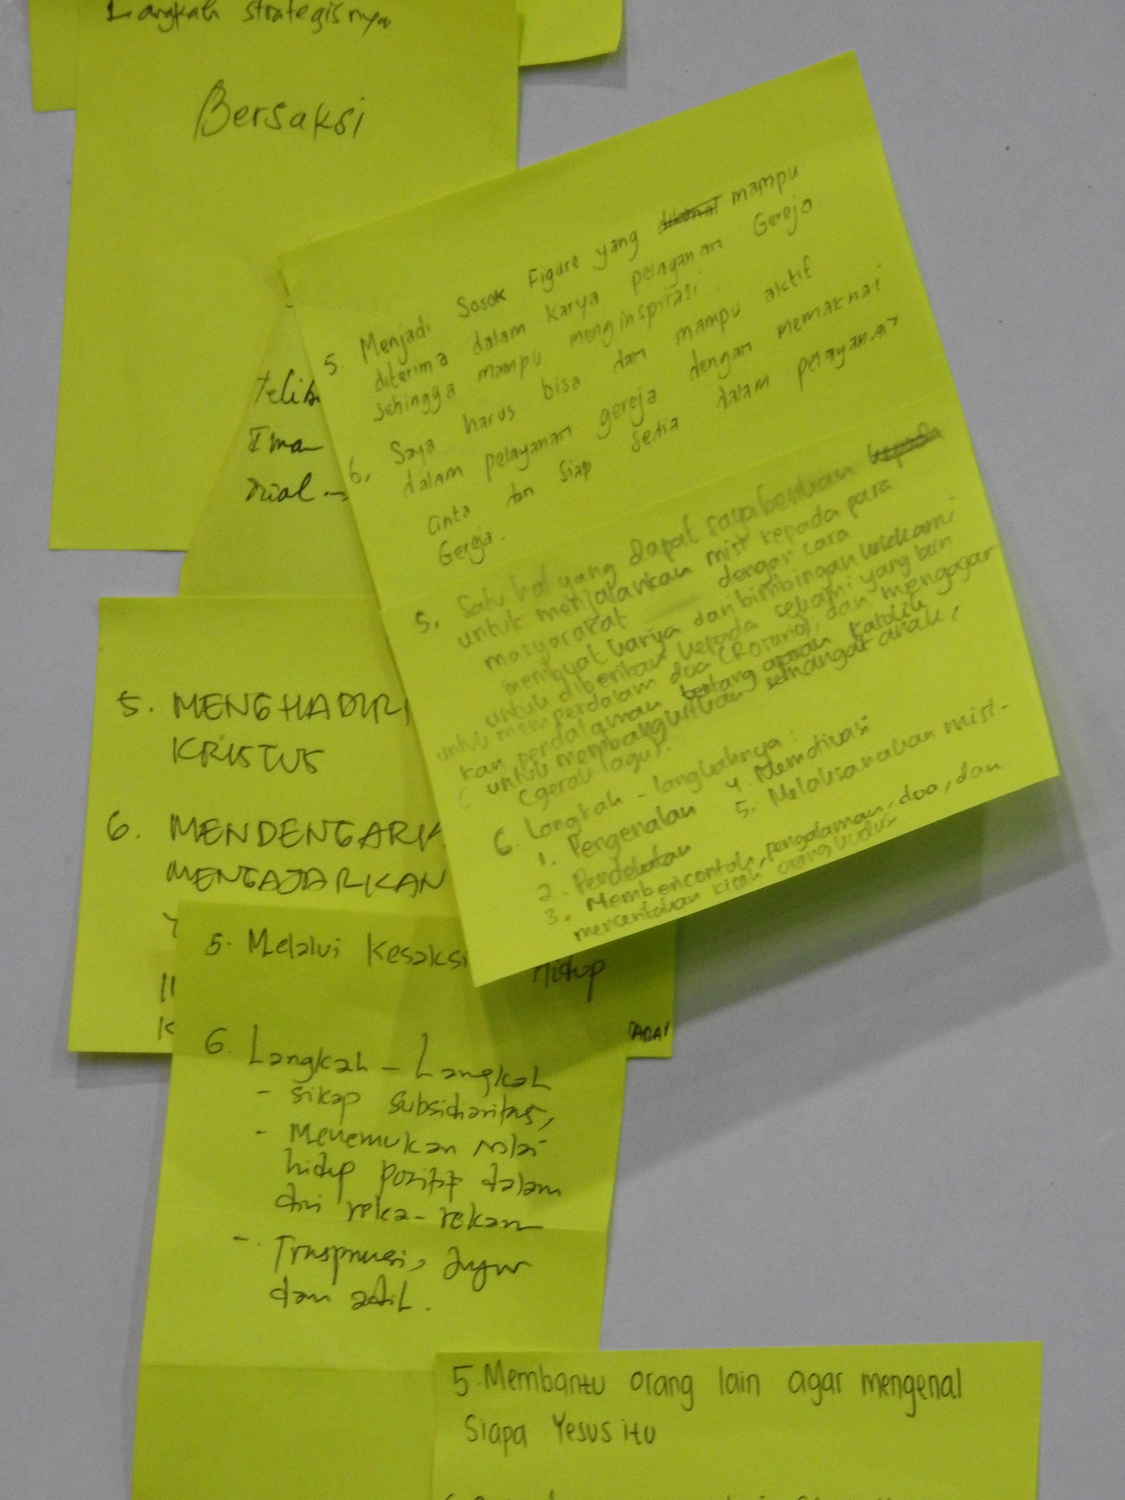 Langkah strategisnya
Bersaksi
5. Menjadi Sosok Figure yang mampu
diterima dalam karya pelayanan Gereja
sehingga mampu menginspirasi.
6. Saya harus bisa dan mampu aktif
dalam pelayanan gereja dengan memaknai
cinta dan siap sedia dalam pelayanan
Gereja.
5. Satu hal yang dapat saya berikan
untuk menjalankan misi kepada para
masyarakat dengan cara
membuat karya dan bimbingan
untuk diberikan kepada sekami yang lain
untuk memperdalam doa (Rosario), dan mengajar
kan perdalaman tentang ajaran katolik
( untuk membangkitkan semangat anak,
(gerak lagu).
6. Langkah - langkahnya :
1. Pengenalan 4. Memotivasi
2. Pendekatan 5. Melaksanakan misi-
3. Membericontoh, pengalaman, doa, dan
menceritakan kisah orang kudus
Iman
5. MENGHADIRI
KRISTUS
6. MENDENGARK
MENGAJARKAN
5. Melalui Kesaksi
Hidup
6. Langkah - Langkah
- sikap subsidiaritas,
- Menemukan nilai
hidup positif dalam
diri reka-rekan
- Transparansi, Jujur
dan adil.
5. Membantu orang lain agar mengenal
Siapa Yesus itu